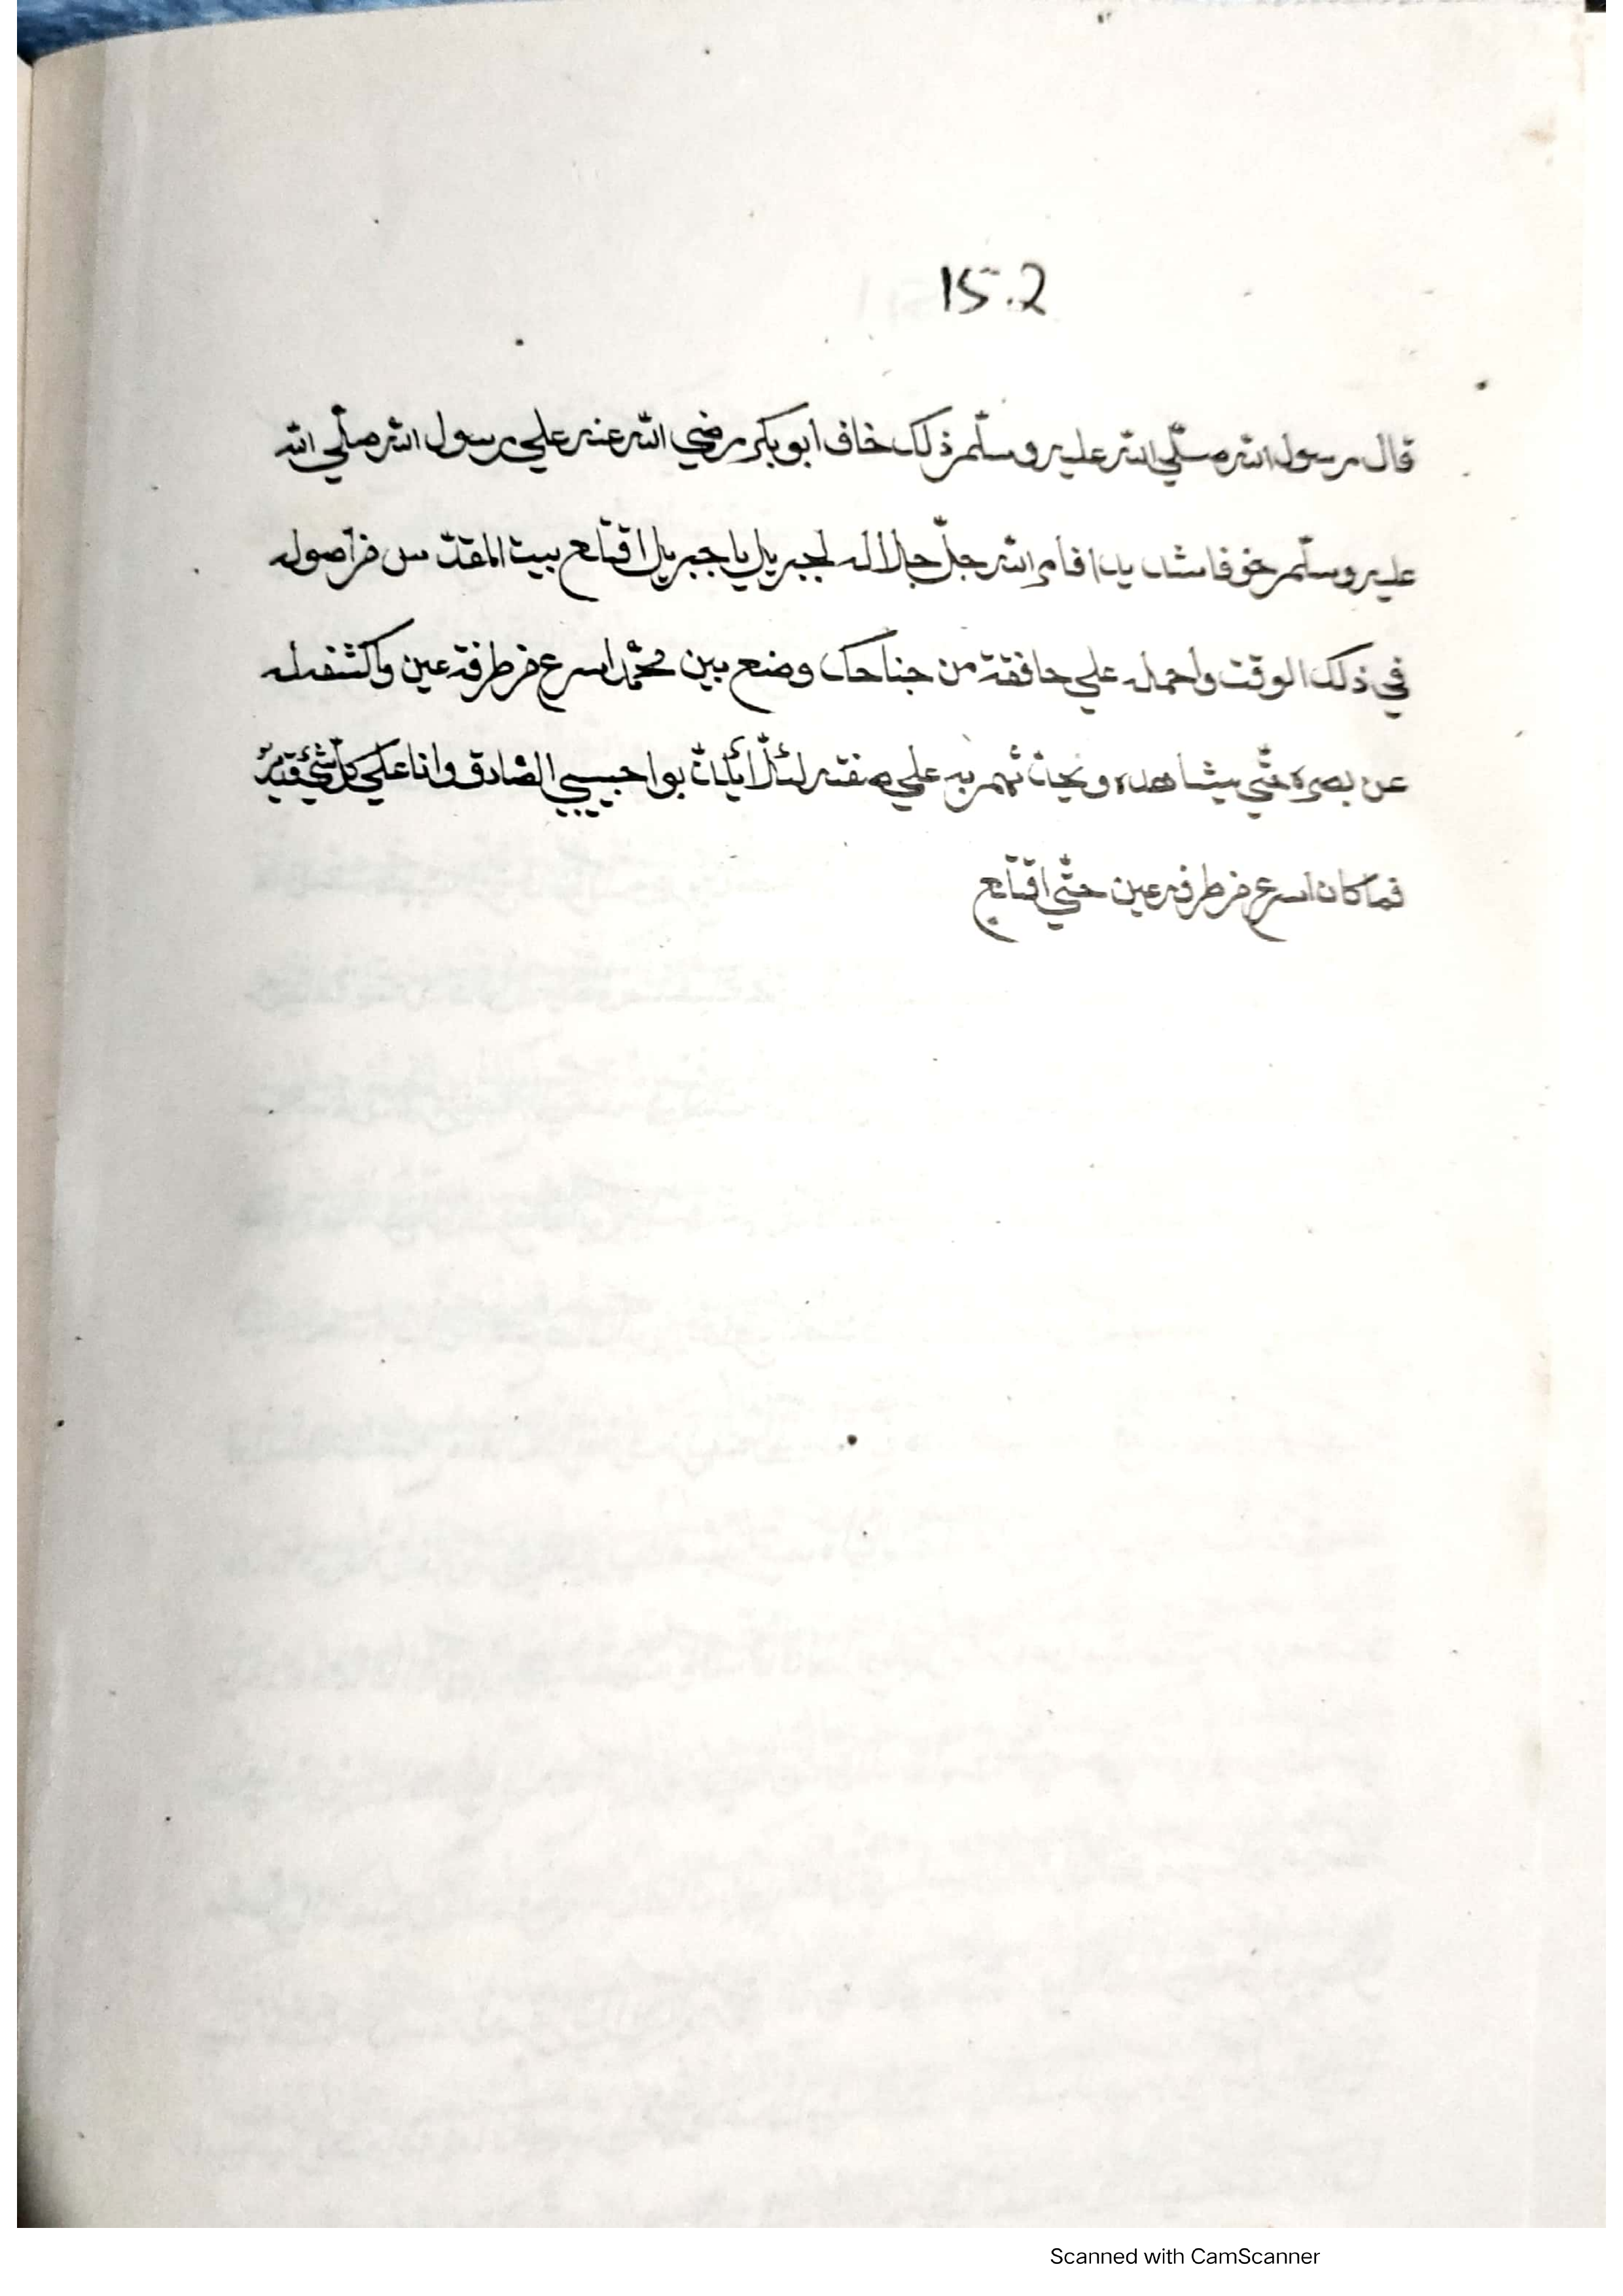 15.2
قال رسول الله صلّي الله عليه وسلّم ذلك خاف ابو بكر رضي الله عنه علي رسول الله صلّي الله
عليه وسلّم خوفا شديدا فامر الله جلّ جلاله لجبريل يا جبريل اقتلع بيت المقدّس من اصوله
في ذلك الوقت واحمله علي حافقة من جناحك وضع بين محمّد اسرع من طرفة عين واكشف له
عن بصره حتّي يشاهده ونجات ثمر به علي صفته لئلّا يكذّبوا حبيبي الصّادق وانا علي كلّ شئ قدير
فما كان اسرع من طرفه عين حتّي اقتلع
Scanned with CamScanner